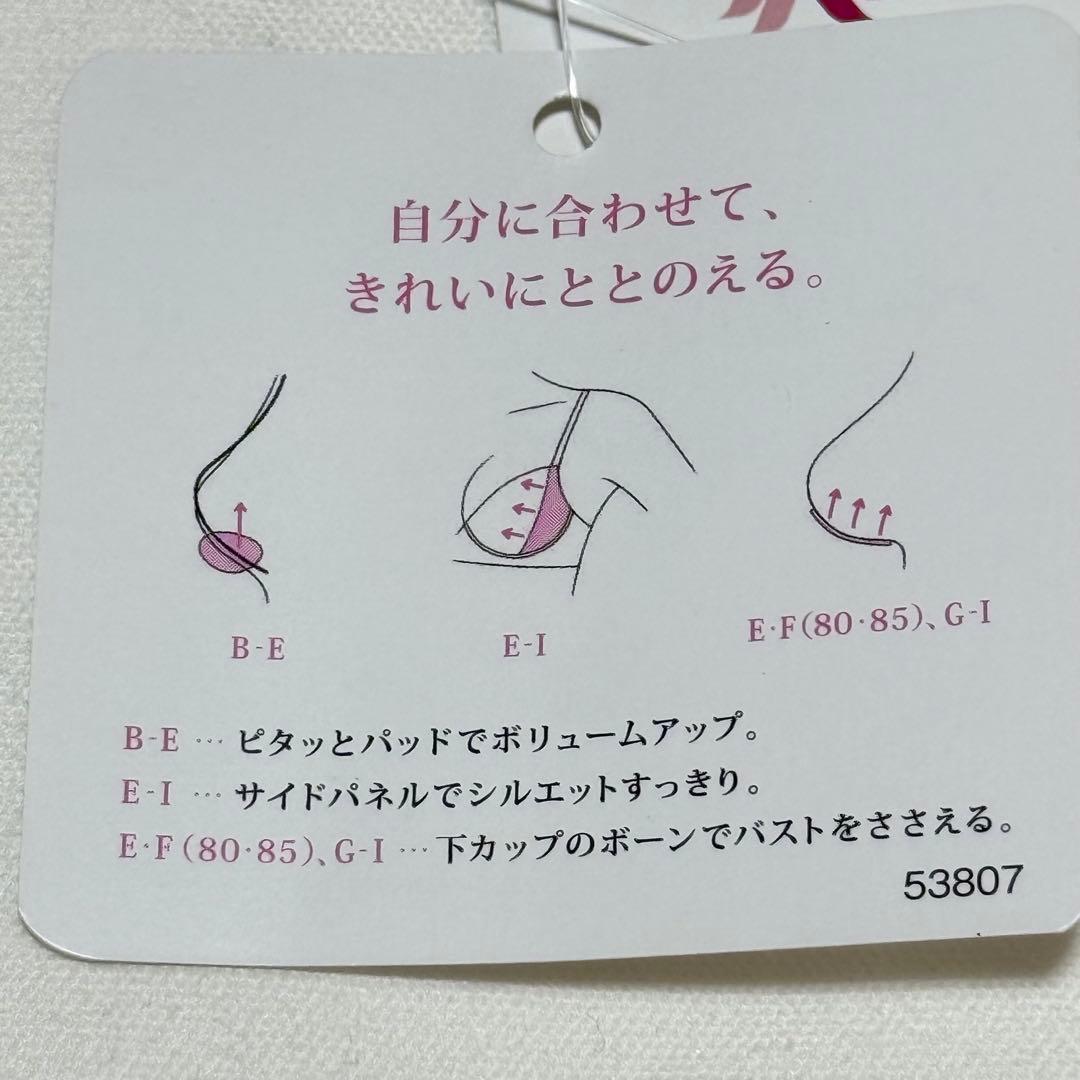 自分に合わせて、
きれいにととのえる。
B-E
E-I
E·F(80·85)、G-I
B-E … ピタッとパッドでボリュームアップ。
E-I … サイドパネルでシルエットすっきり。
E·F(80·85)、G-I … 下カップのボーンでバストをささえる。
53807